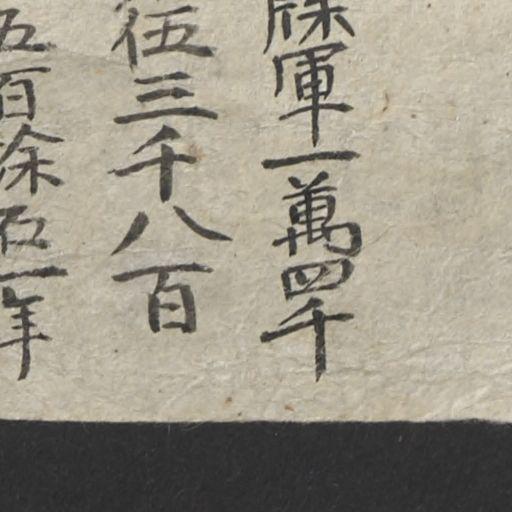 牒軍一萬四千
伍三千八百
五百余石一年